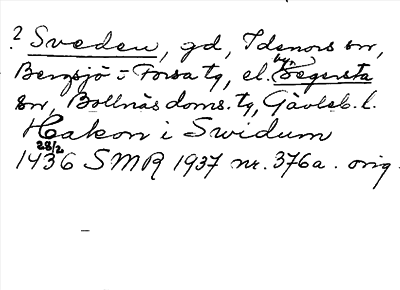 ? Sveden, gd, Idenors sn,
Bergsjö - Forsa tg, el. by Segersta
sn, Bollnäs doms. tg, Gävleb. l.
Hakon i Swidum
28/2
1436 SMR 1937 nr. 376a. orig.